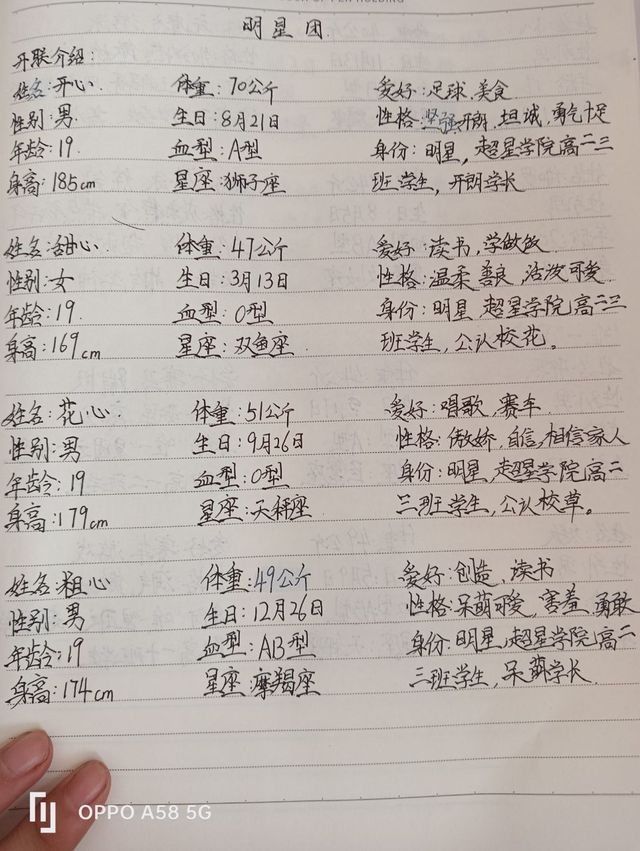 明星团
开联介绍:
姓名:开心 体重:70公斤 爱好:足球、美食
性别:男 生日:8月21日 性格:坚强开朗、坦诚,勇气十足
年龄:19. 血型:A型 身份:明星,超星学院高二三
身高:185cm 星座:狮子座 班学生,开朗学长
姓名:甜心 体重:47公斤 爱好:读书,学做饭
性别:女 生日:3月13日 性格:温柔善良,活泼可爱
年龄:19. 血型:O型 身份:明星,超星学院,高二三
身高:169cm 星座:双鱼座 班学生,公认校花。
姓名:花心 体重:51公斤 爱好:唱歌,赛车
性别:男 生日:9月26日 性格:傲娇,自信,相信家人
年龄:19 血型:O型 身份:明星,超星学院,高二
身高:179cm 星座:天秤座 三班学生,公认校草。
姓名:粗心 体重:49公斤 爱好:创造,读书
性别:男 生日:12月26日 性格:呆萌可爱,害羞,勇敢
年龄:19 血型:AB型 身份:明星,超星学院,高二
身高:174cm 星座:摩羯座 三班学生,呆萌学长
OPPO A58 5G